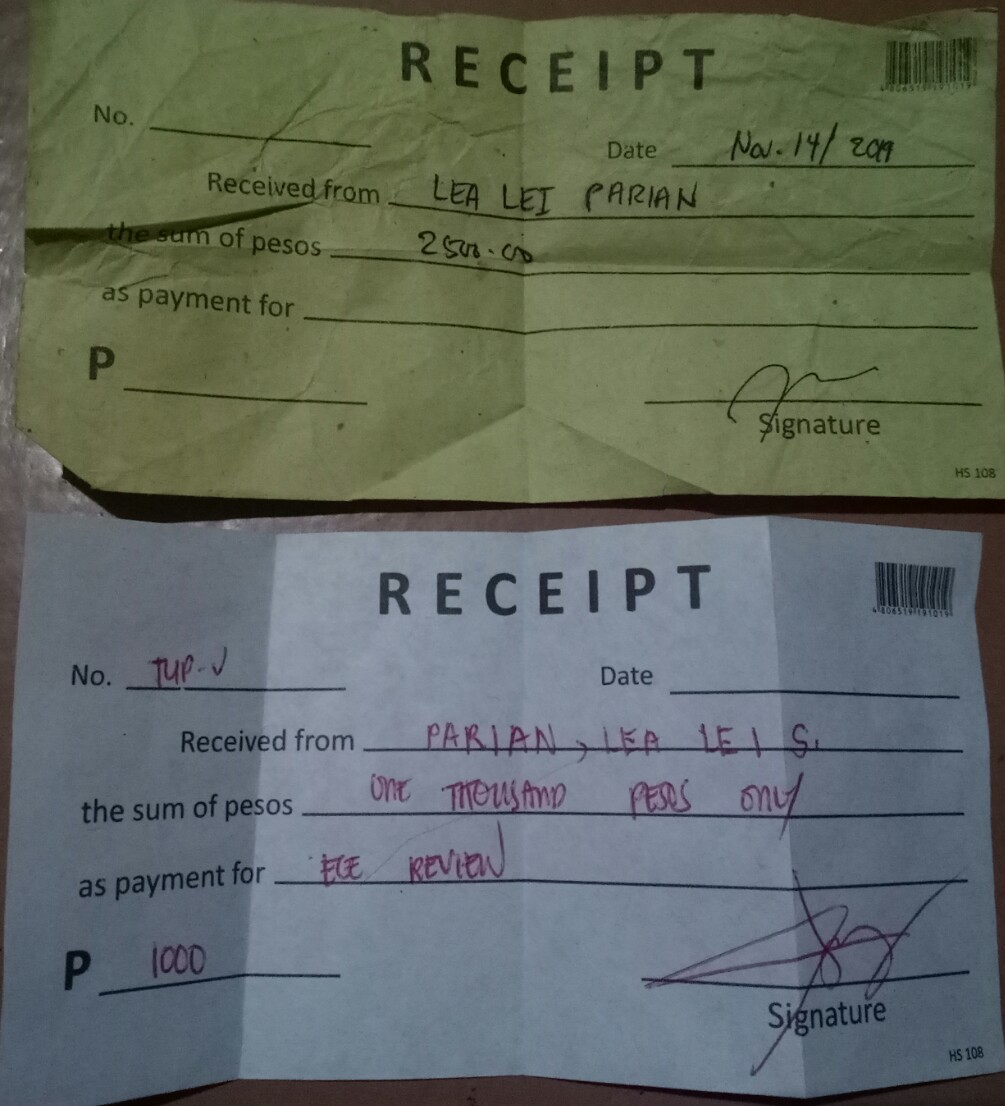 RECEIPT
4806519191019
No.
Date Nov. 14/ 2019
Received from LEA LEI PARIAN
the sum of pesos 2500.00
as payment for
P
Signature
HS 108
RECEIPT
4806519191019
No. TUP-V
Date
Received from PARIAN, LEA LEI S.
the sum of pesos ONE THOUSAND PESOS ONLY
as payment for ECE REVIEW
P 1000
Signature
HS 108